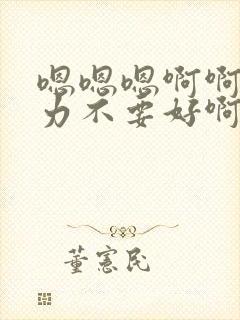 嗯嗯嗯啊啊
力不要好啊
董宪民